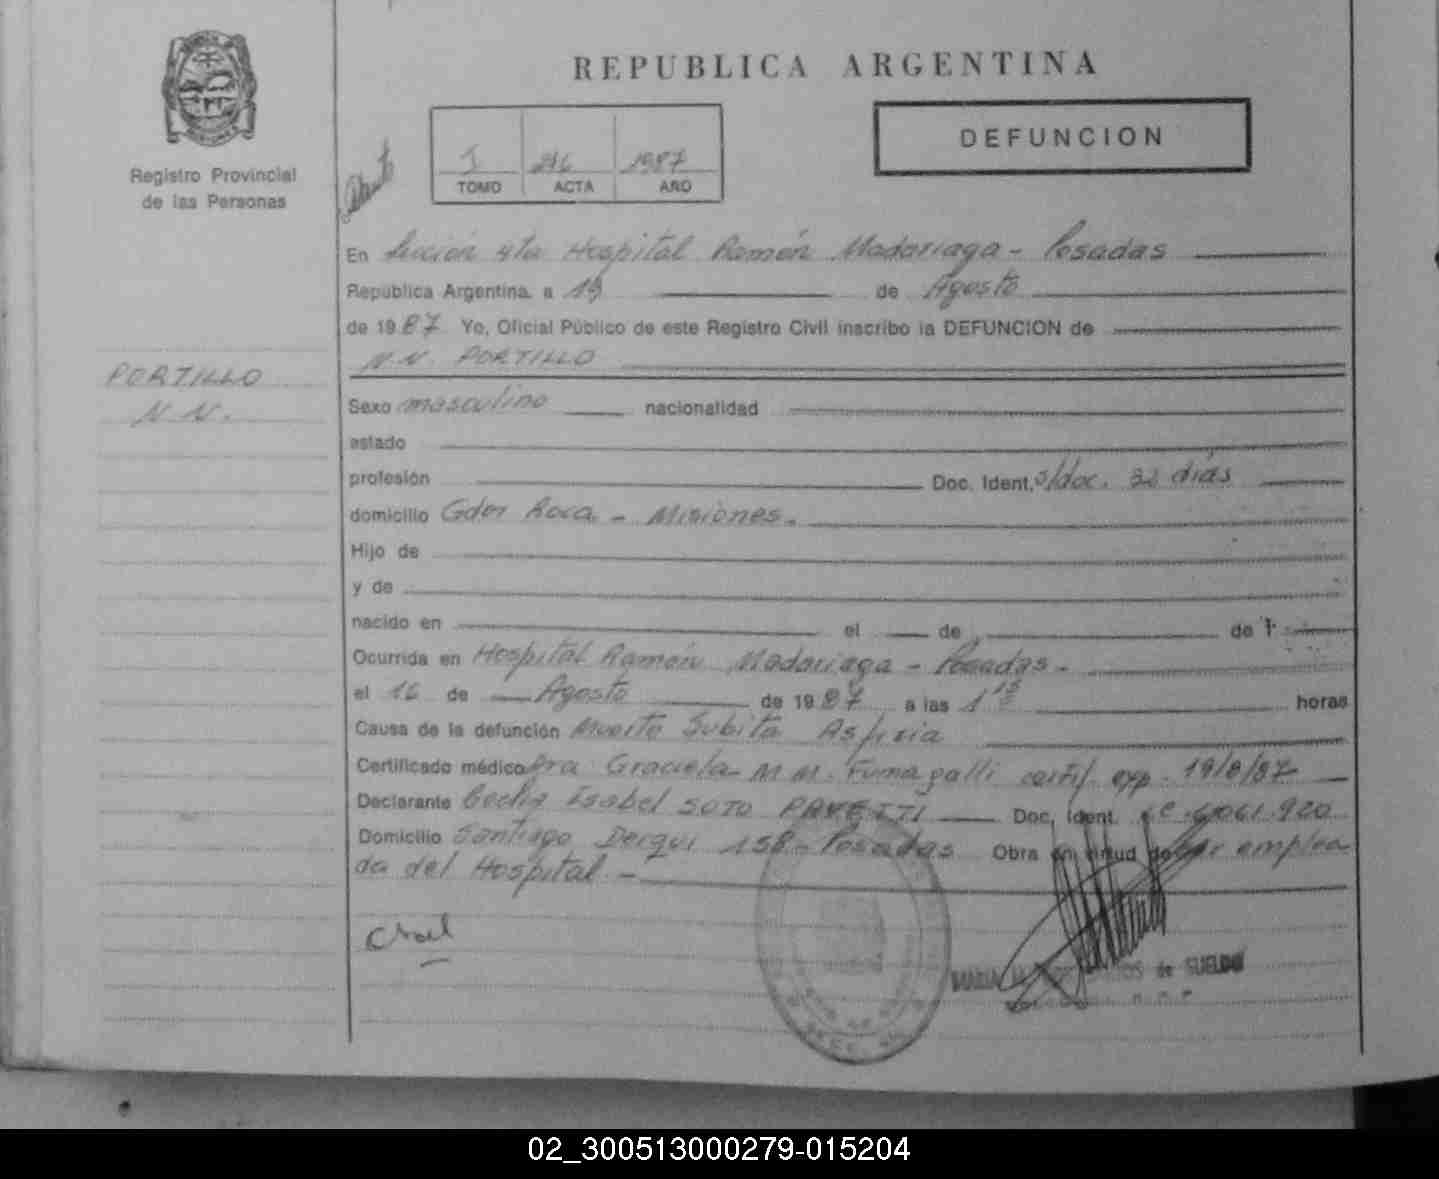 REPUBLICA ARGENTINA
DEFUNCION
Registro Provincial
de las Personas
I 246 1987
TOMO ACTA AÑO
En Sección 4ta Hospital Ramón Madariaga - Posadas
República Argentina a 19 de Agosto
de 1987 Yo, Oficial Público de este Registro Civil inscribo la DEFUNCION de
N.N. PORTILLO
PORTILLO
N.N.
Sexo masculino nacionalidad
estado
profesión Doc. Ident. s/doc. 32 días
domicilio Gdor Roca - Misiones.
Hijo de
y de
nacido en el de de 1
Ocurrida en Hospital Ramón Madariaga - Posadas -
el 16 de Agosto de 1987 a las 1 15 horas
Causa de la defunción Muerte Subita Asfixia
Certificado médico Dra Graciela M M. Fumagalli certif. exp. 19/8/87
Declarante Isabel SOTO Doc. Ident. 920
Domicilio Santiago Derqui 158 - Posadas Obra en virtud de ser emplea
da del Hospital. -
MARIA de SUELDO
02_300513000279-015204